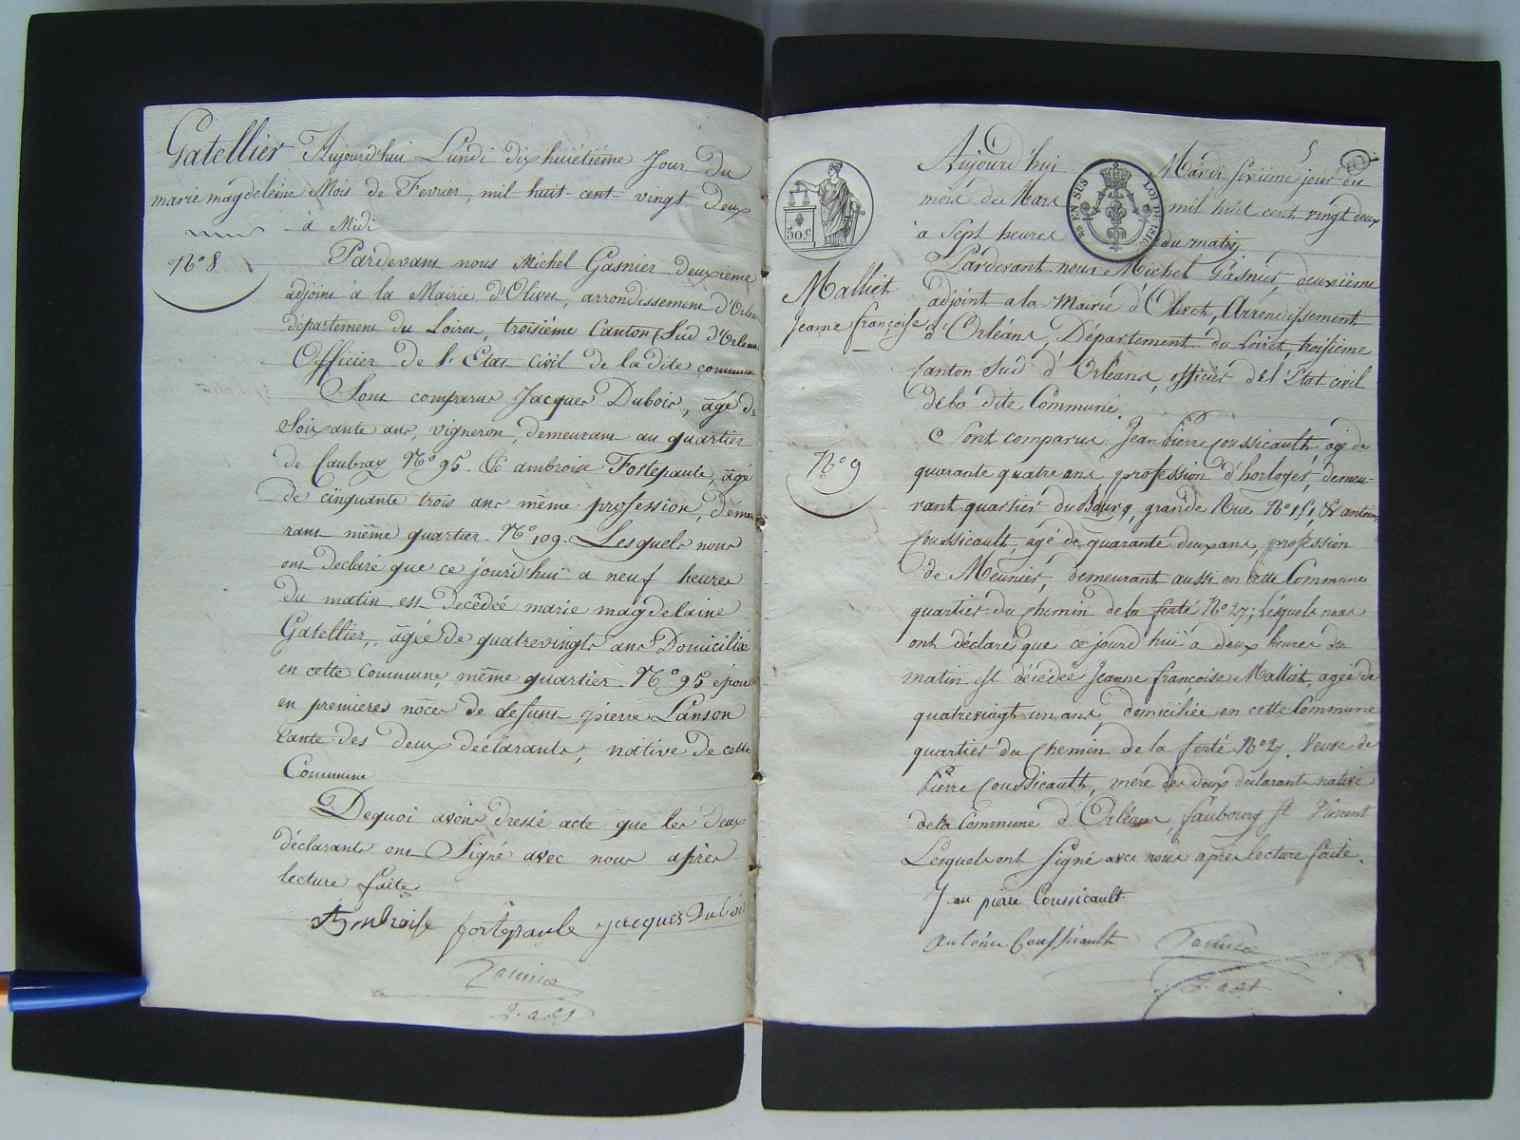 Gatellier
marie magdeleine
N° 8
Aujourd'hui Lundi dix huitiéme Jour Du
Mois de Fevrier, mil huit cent vingt Deux
à Midi
Pardevant nous Michel Gasnier Deuxième
adjoint à la Mairie d'Olivet, arrondissement d'Orlea
département du Loiret, troisiéme Canton (Sud d'Orleans
Officier de l'Etat civil de la dite commune
Sont comparus Jacques Dubois, âgé de
Soixante ans, vigneron, demeurant au quartier
de Caubray N° 95. & ambroise Fortepaule, âgé
de cinquante trois ans même profession, démeu
rant même quartier N° 109. Lesquels nous
ont Declaré que ce jourd'hui a neuf heures
du matin est Décédée marie magdelaine
Gatellier, âgée de quatrevingts ans Domiciliée
en cette Commune, même quartier N° 95 épouse
en premieres nôces de defunt pierre Lanson
tante des Deux déclarants, native de cette
Commune
Dequoi avons dressé acte que les deux
déclarants ont Signé avec nous après
lecture faite
Ambroise fortepaule jacques Dubois
5
30 c.
EN SUS
LOI DE 1816
Malliet
Jeanne françoise
N° 9
Aujourd'hui Mardi sixiéme jour du
mois de Mars mil huit cent vingt deux
à Sept heures du matin
Pardevant nous Michel Gasnier, deuxiéme
adjoint a la Mairie d'Olivet, Arrondissement
d'Orléans, Département du Loiret, troisiéme
Canton Sud d'Orléans, officier de l'Etat civil
de la dite Commune.
Sont comparus Jean Pierre Coussicault, agé de
quarante quatre ans, profession d'horloger, demeu-
rant quartier du Bourg, grande Rue N° 151, & antoine
Coussicault, agé de quarante deux ans, profession
de Meunier, demeurant aussi en cette Commune
quartier du chemin de la ferté N° 27; lesquels nous
ont déclarés que ce jourd'hui à deux heures du
matin est décédée Jeanne françoise Malliet, agée de
quatrevingt un ans, domiciliée en cette Commune
quartier du Chemin de la ferté N° 27. Veuve de
Pierre Coussicault, mère des deux declarants native
de la Commune d'Orléans, faubourg St Vincent
Lesquels ont signé avec nous après lecture faite.
Jean pierre Coussicault
Antoine Coussicault